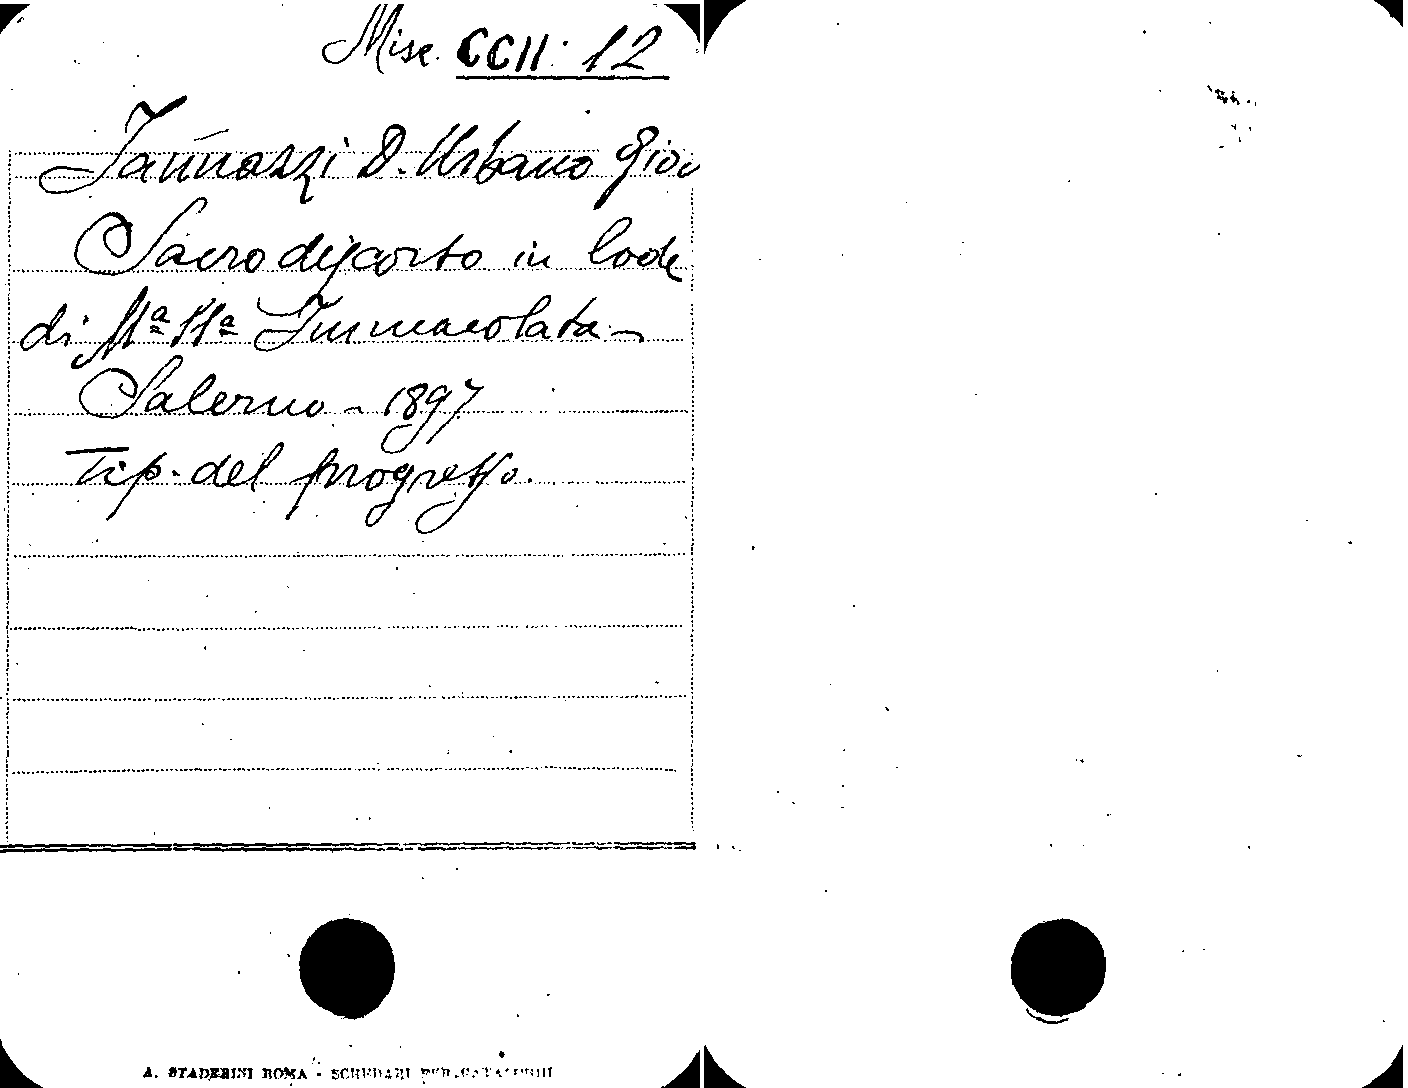 Misc. CCII. 12
Iannozzi D. Urbano Giov
Sacro discorso in lode
di Mª SSª Immacolata -
Salerno - 1897
Tip. del progresso.
A. STADERINI ROMA - SCHEDARI PER CATALOGHI